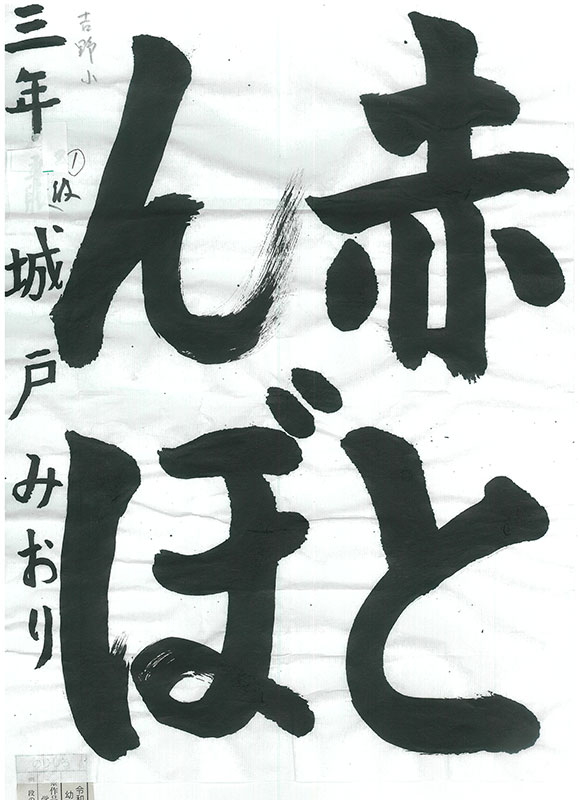 赤と
んぼ
三年 城戸みおり
吉野小
令和